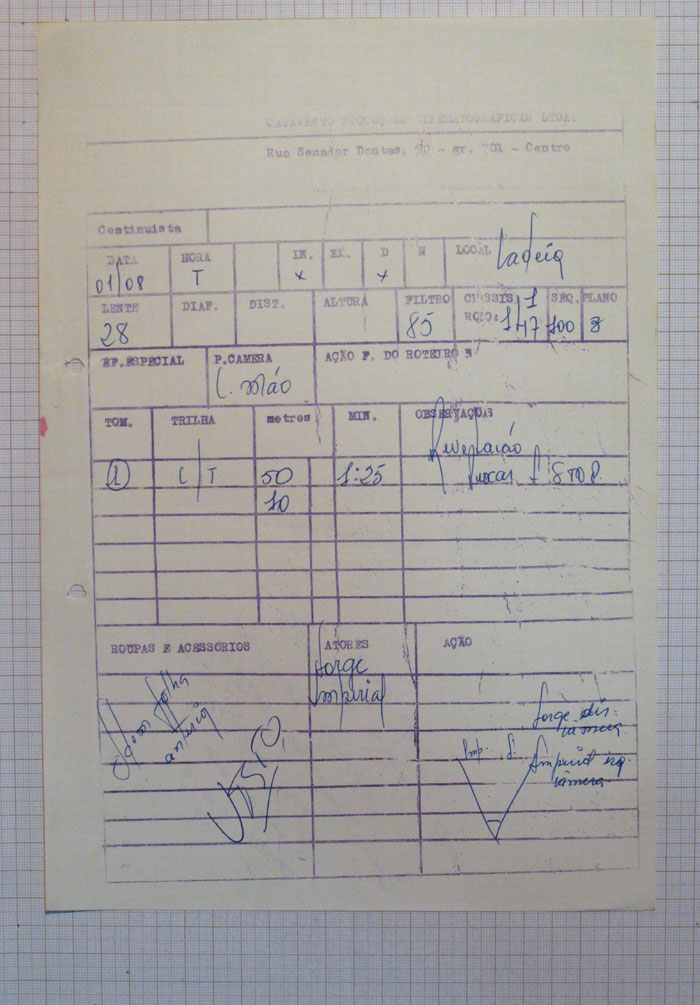 CATAVENTO PRODUÇÕES CINEMATOGRAFICAS LTDA.
Rua Senador Dantas, 80 - gr. 701 - Centro
Continuista
DATA HORA IN. EX. D N LOCAL Ladeira
01/08 T x x
LENTE DIAF. DIST. ALTURA FILTRO CHASSIS 1 SEQ. PLANO
28 85 ROLO: 147 100 8
EF.ESPECIAL P.CAMERA AÇÃO F. DO ROTEIRO N
C. mão
TOM. TRILHA metros MIN. OBSERVAÇÕES
Revelação
1 C/T 50 1:25 puxar 1 STOP.
10
ROUPAS E ACESSÓRIOS ATORES AÇÃO
Jorge
Imperial
Idem folha
anterior
VISTO,
Jorge dir.
câmera
Imp. J. Imperial esq.
câmera